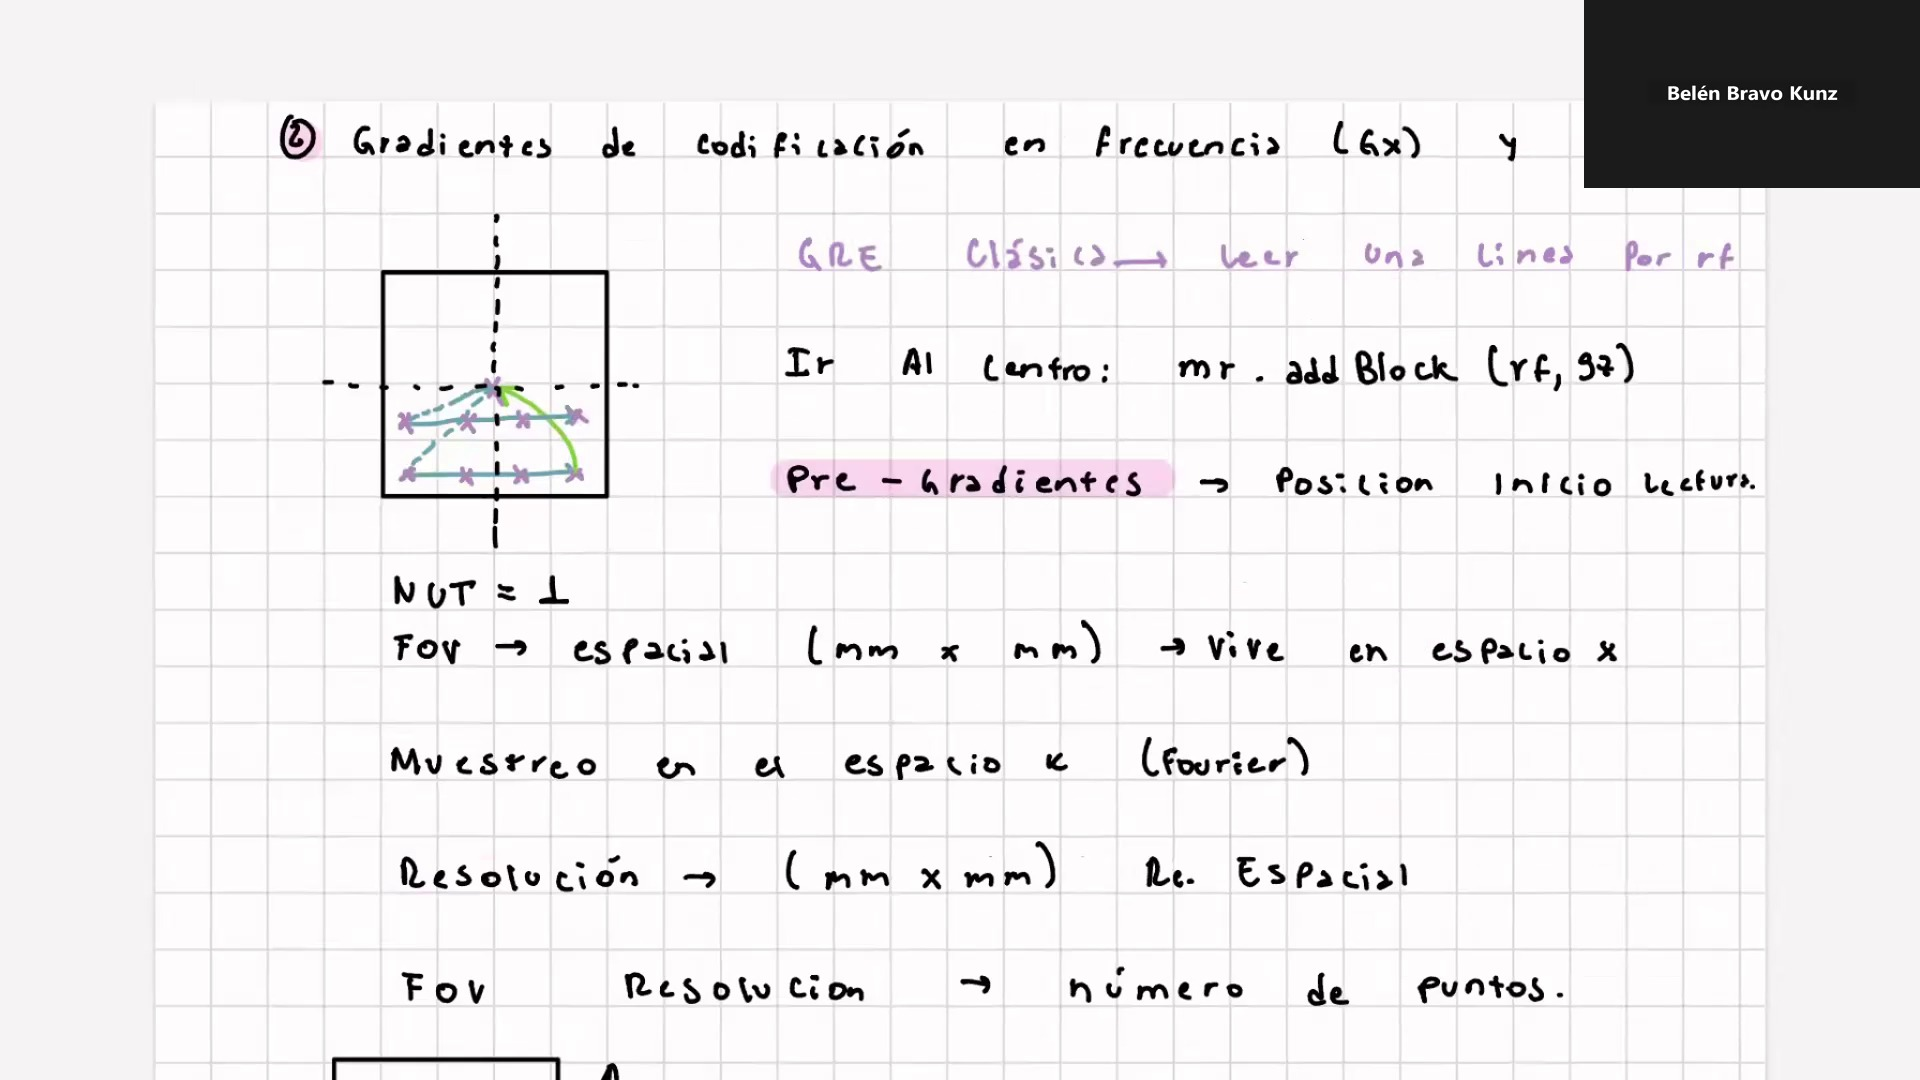 Belén Bravo Kunz
② Gradientes de codificación en frecuencia (Gx) y
GRE Clásica → leer una linea por rf
Ir Al centro: mr. addBlock (rf, gz)
Pre - Gradientes → Posicion Inicio Lectura.
NUT ≈ 1
FOV → espacial (mm x mm) → vive en espacio x
Muestreo en el espacio k (Fourier)
Resolución → (mm x mm) Re. Espacial
FOV Resolucion → número de puntos.